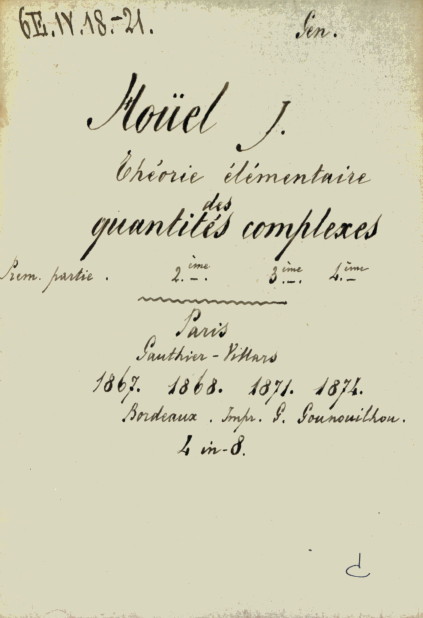 6E.IV.18.-21. Gen.
Hoüel J.
Théorie élémentaire
des
quantités complexes
Prem. partie. 2.ème 3.ème 4.ème
Paris
Gauthier-Villars
1867. 1868. 1871. 1874.
Bordeaux. Impr. G. Gounouilhou.
4 in-8.